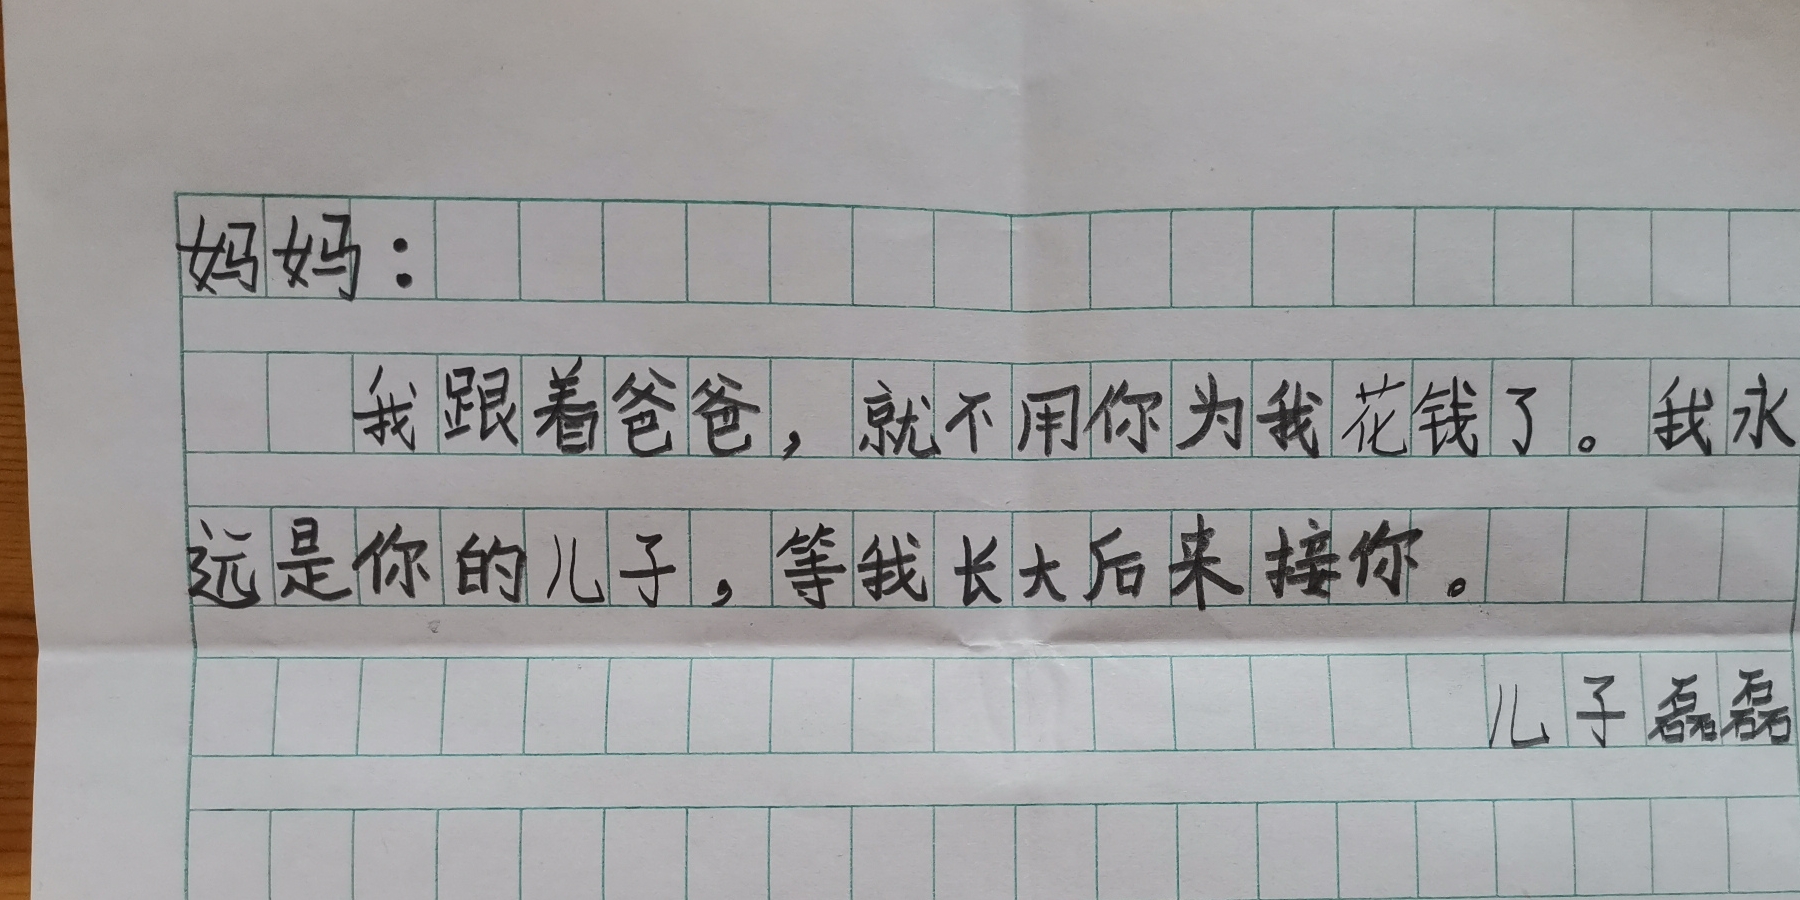 妈妈：
我跟着爸爸，就不用你为我花钱了。我永
远是你的儿子，等我长大后来接你。
儿子磊磊